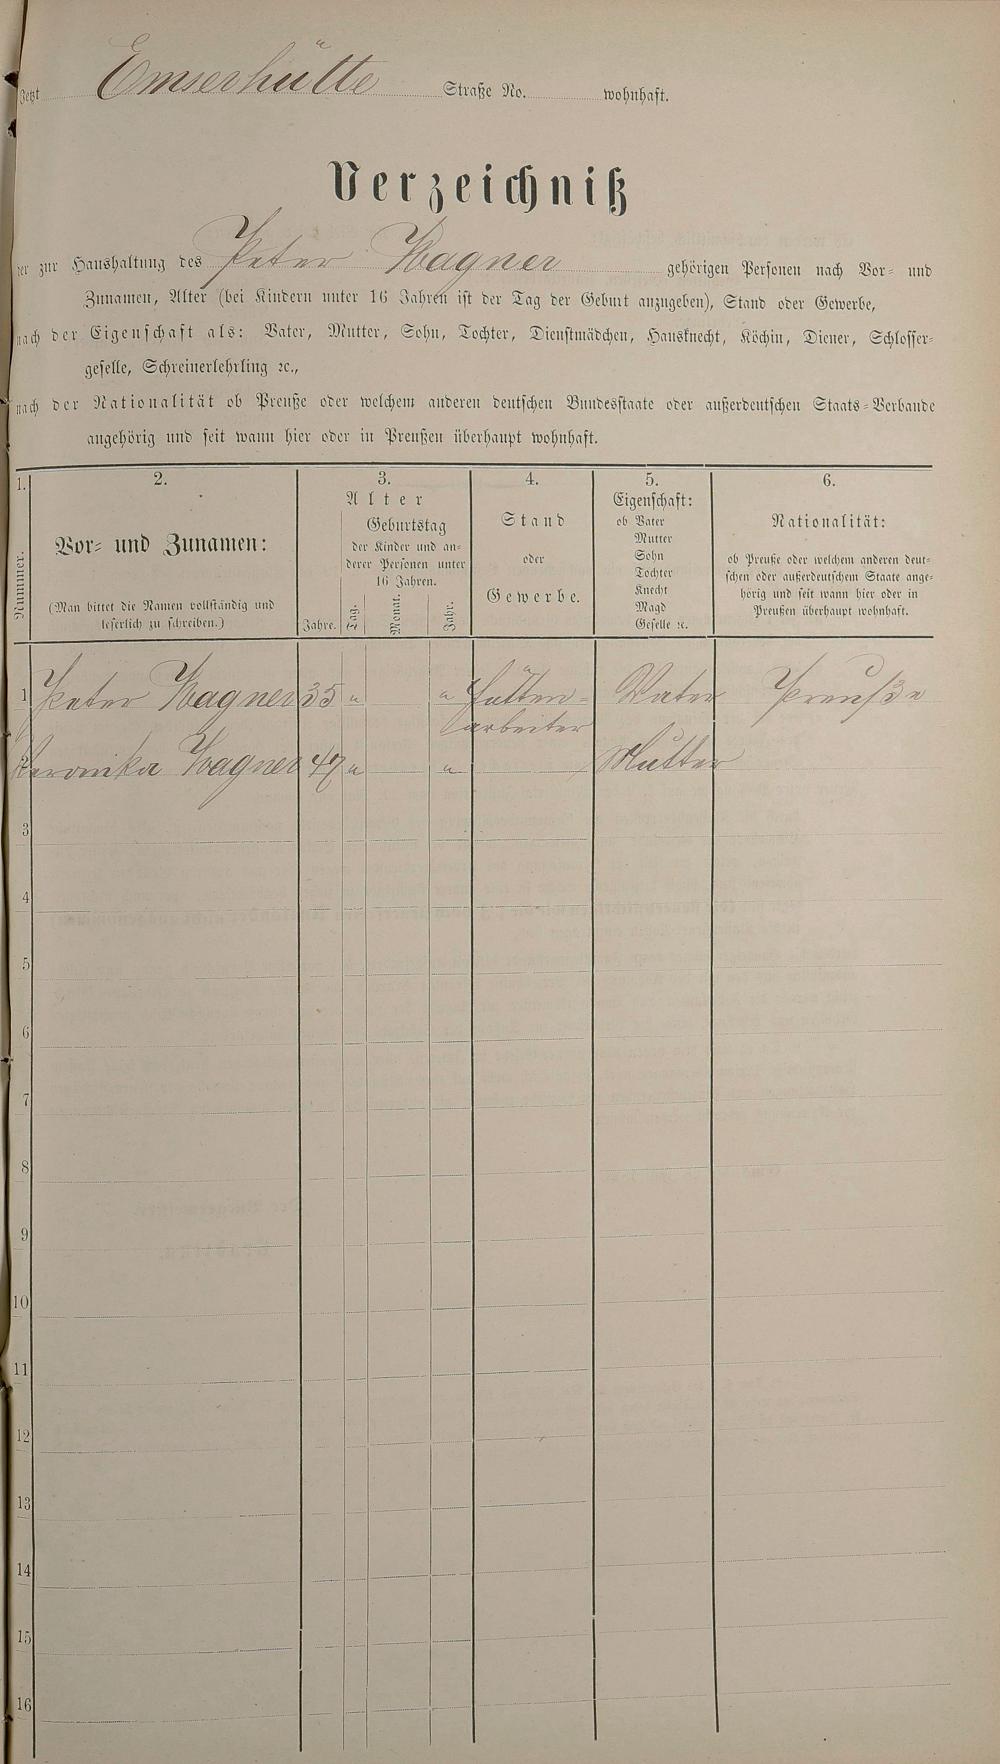 Jetzt Emserhütte Straße No. wohnhaft.
Verzeichniß
der zur Haushaltung des Peter Wagner gehörigen Personen nach Vor- und
Zunamen, Alter (bei Kindern unter 16 Jahren ist der Tag der Geburt anzugeben), Stand oder Gewerbe,
nach der Eigenschaft als: Vater, Mutter, Sohn, Tochter, Dienstmädchen, Hausknecht, Köchin, Diener, Schlosser-
geselle, Schreinerlehrling ꝛc.,
nach der Nationalität ob Preuße oder welchem anderen deutschen Bundesstaate oder außerdeutschen Staats-Verbande
angehörig und seit wann hier oder in Preußen überhaupt wohnhaft.
1.
Nummer.
2.
Vor- und Zunamen:
(Man bittet die Namen vollständig und
leserlich zu schreiben.)
3.
Alter
Jahre.
Geburtstag
der Kinder und an-
derer Personen unter
16 Jahren.
Tag. Monat. Jahr.
4.
Stand
oder
Gewerbe.
5.
Eigenschaft:
ob Vater
Mutter
Sohn
Tochter
Knecht
Magd
Geselle ꝛc.
6.
Nationalität:
ob Preuße oder welchem anderen deut-
schen oder außerdeutschem Staate ange-
hörig und seit wann hier oder in
Preußen überhaupt wohnhaft.
1 Peter Wagner 35 " " Hütten- Vater Preuße
arbeiter
2 Veronika Wagner 47 " " Mutter
3
4
5
6
7
8
9
10
11
12
13
14
15
16